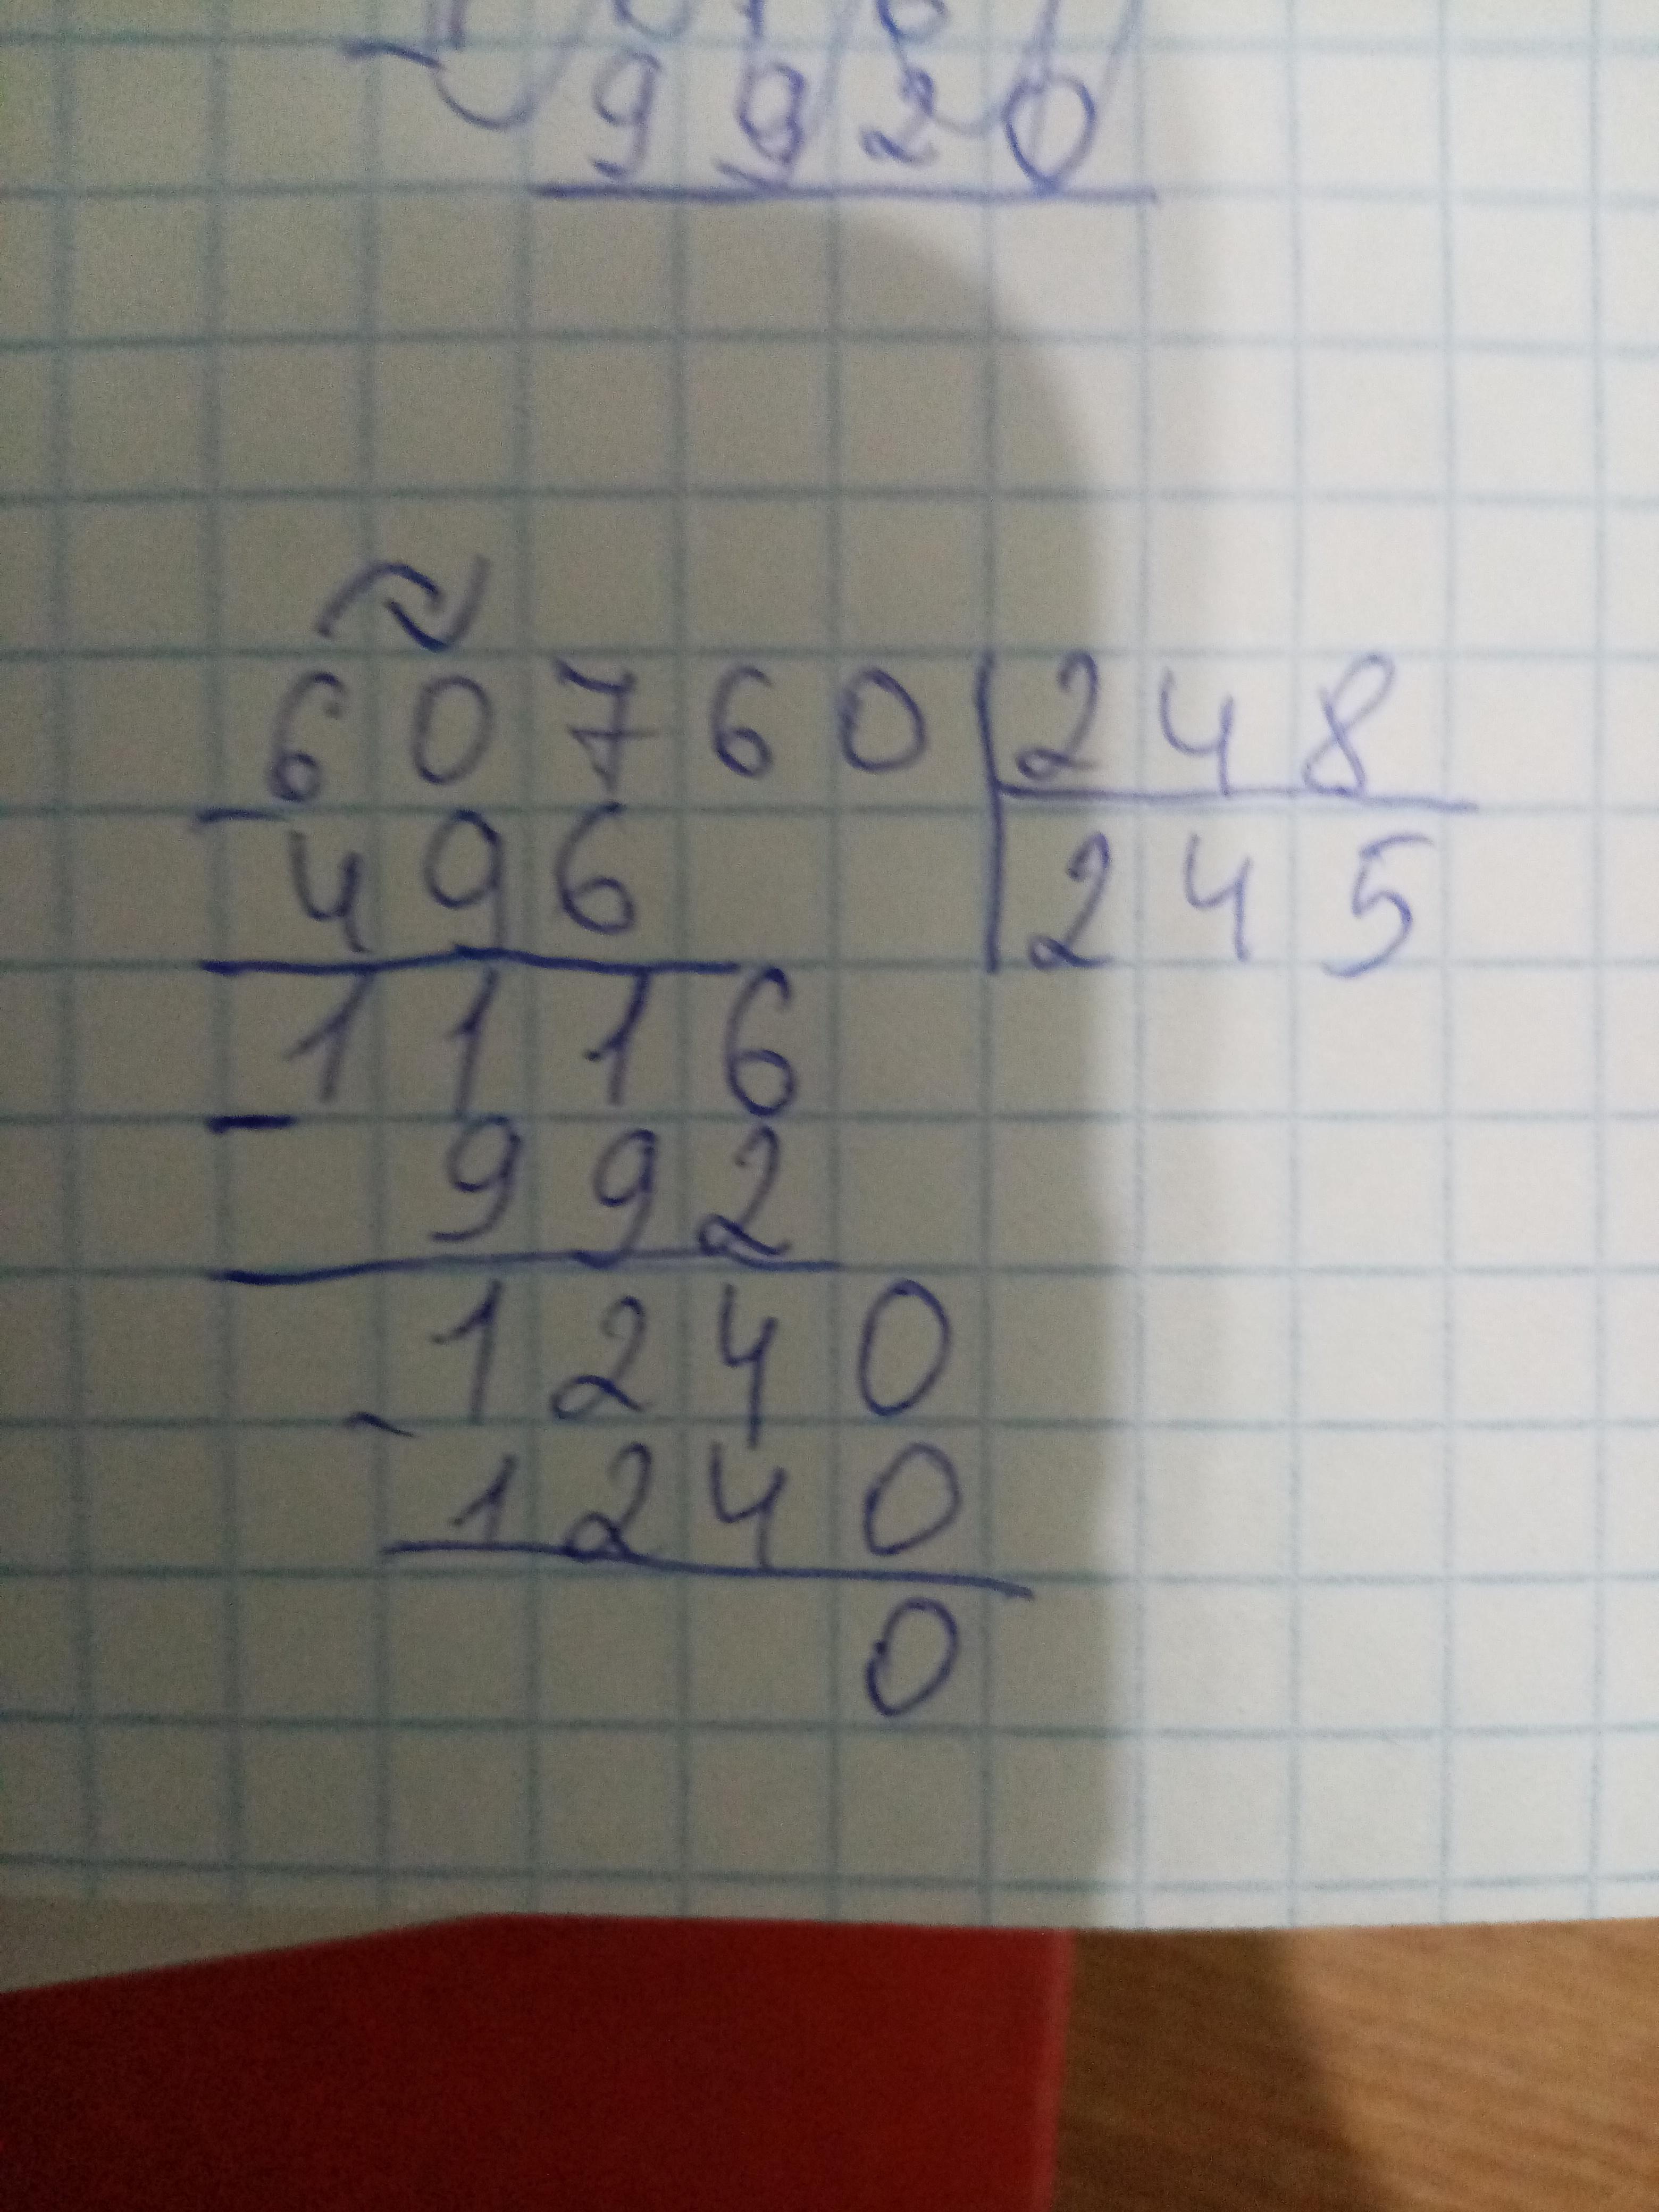 9920
60760 248
- 496 245
1116
- 992
1240
- 1240
0